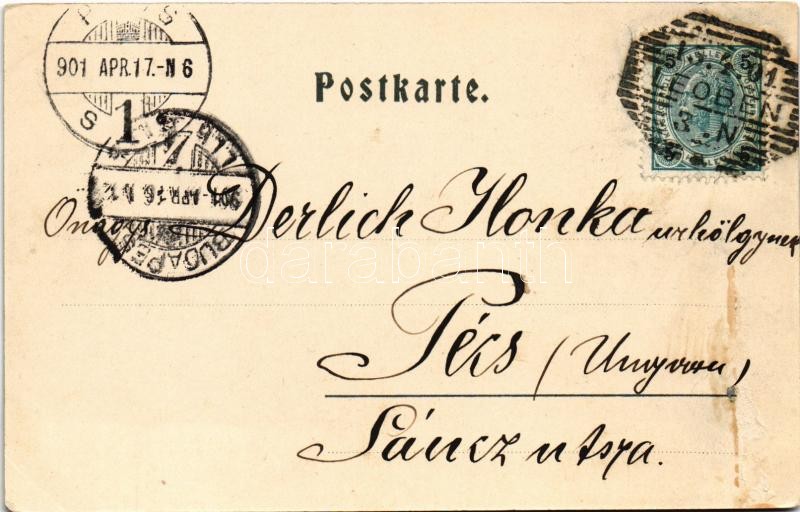 901 APR.17.-N6
S
1
Postkarte.
5
LEOBEN
BUDAPEST
901-APR.16
Derlich Ilonka urhölgynek
darabanth
Pécs (Ungarn)
Sáncz utsza.